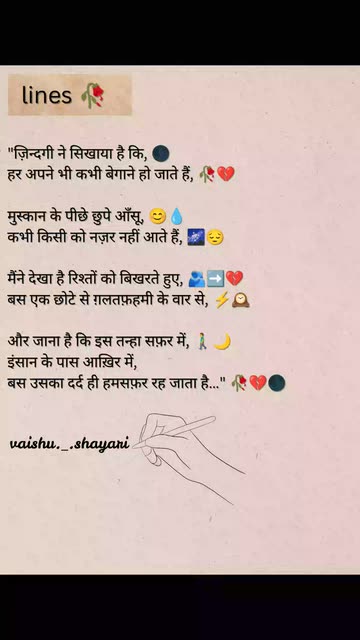 lines 🥀
"ज़िन्दगी ने सिखाया है कि, 🌑
हर अपने भी कभी बेगाने हो जाते हैं, 🥀💔
मुस्कान के पीछे छुपे आँसू, 😊💧
कभी किसी को नज़र नहीं आते हैं, 🌌😔
मैंने देखा है रिश्तों को बिखरते हुए, 🫂➡️💔
बस एक छोटे से ग़लतफ़हमी के वार से, ⚡🕰️
और जाना है कि इस तन्हा सफ़र में, 🚶‍♂️🌙
इंसान के पास आख़िर में,
बस उसका दर्द ही हमसफ़र रह जाता है..." 🥀💔🌑
vaishu._.shayari